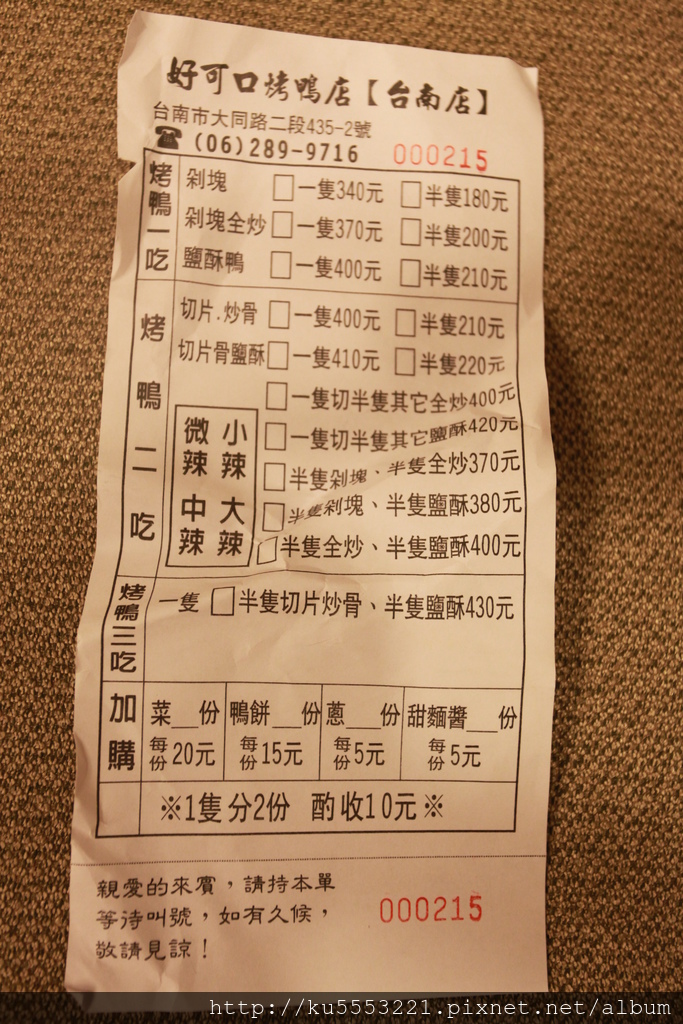 好可口烤鴨店【台南店】
台南市大同路二段435-2號
☎ (06)289-9716 000215
烤鴨一吃
剁塊 □一隻340元 □半隻180元
剁塊全炒 □一隻370元 □半隻200元
鹽酥鴨 □一隻400元 □半隻210元
烤鴨二吃
切片.炒骨 □一隻400元 □半隻210元
切片骨鹽酥 □一隻410元 □半隻220元
□一隻切半隻其它全炒400元
□一隻切半隻其它鹽酥420元
□半隻剁塊、半隻全炒370元
□半隻剁塊、半隻鹽酥380元
□半隻全炒、半隻鹽酥400元
微辣 小辣
中辣 大辣
烤鴨三吃
一隻 □半隻切片炒骨、半隻鹽酥430元
加購
菜__份 鴨餅__份 蔥__份 甜麵醬__份
每份20元 每份15元 每份5元 每份5元
※1隻分2份 酌收10元※
親愛的來賓，請持本單
等待叫號，如有久候，
敬請見諒！
000215
http://ku5553221.pixnet.net/album